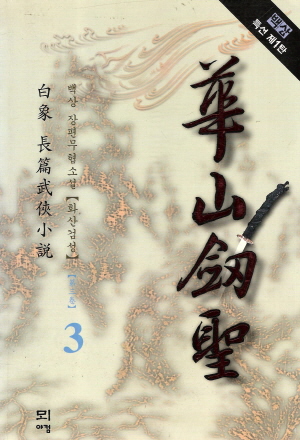 백상
특선 제1탄
華山劒聖
백상 장편무협소설 【화산검성】
3
白象 長篇武俠小說
뫼
야컴